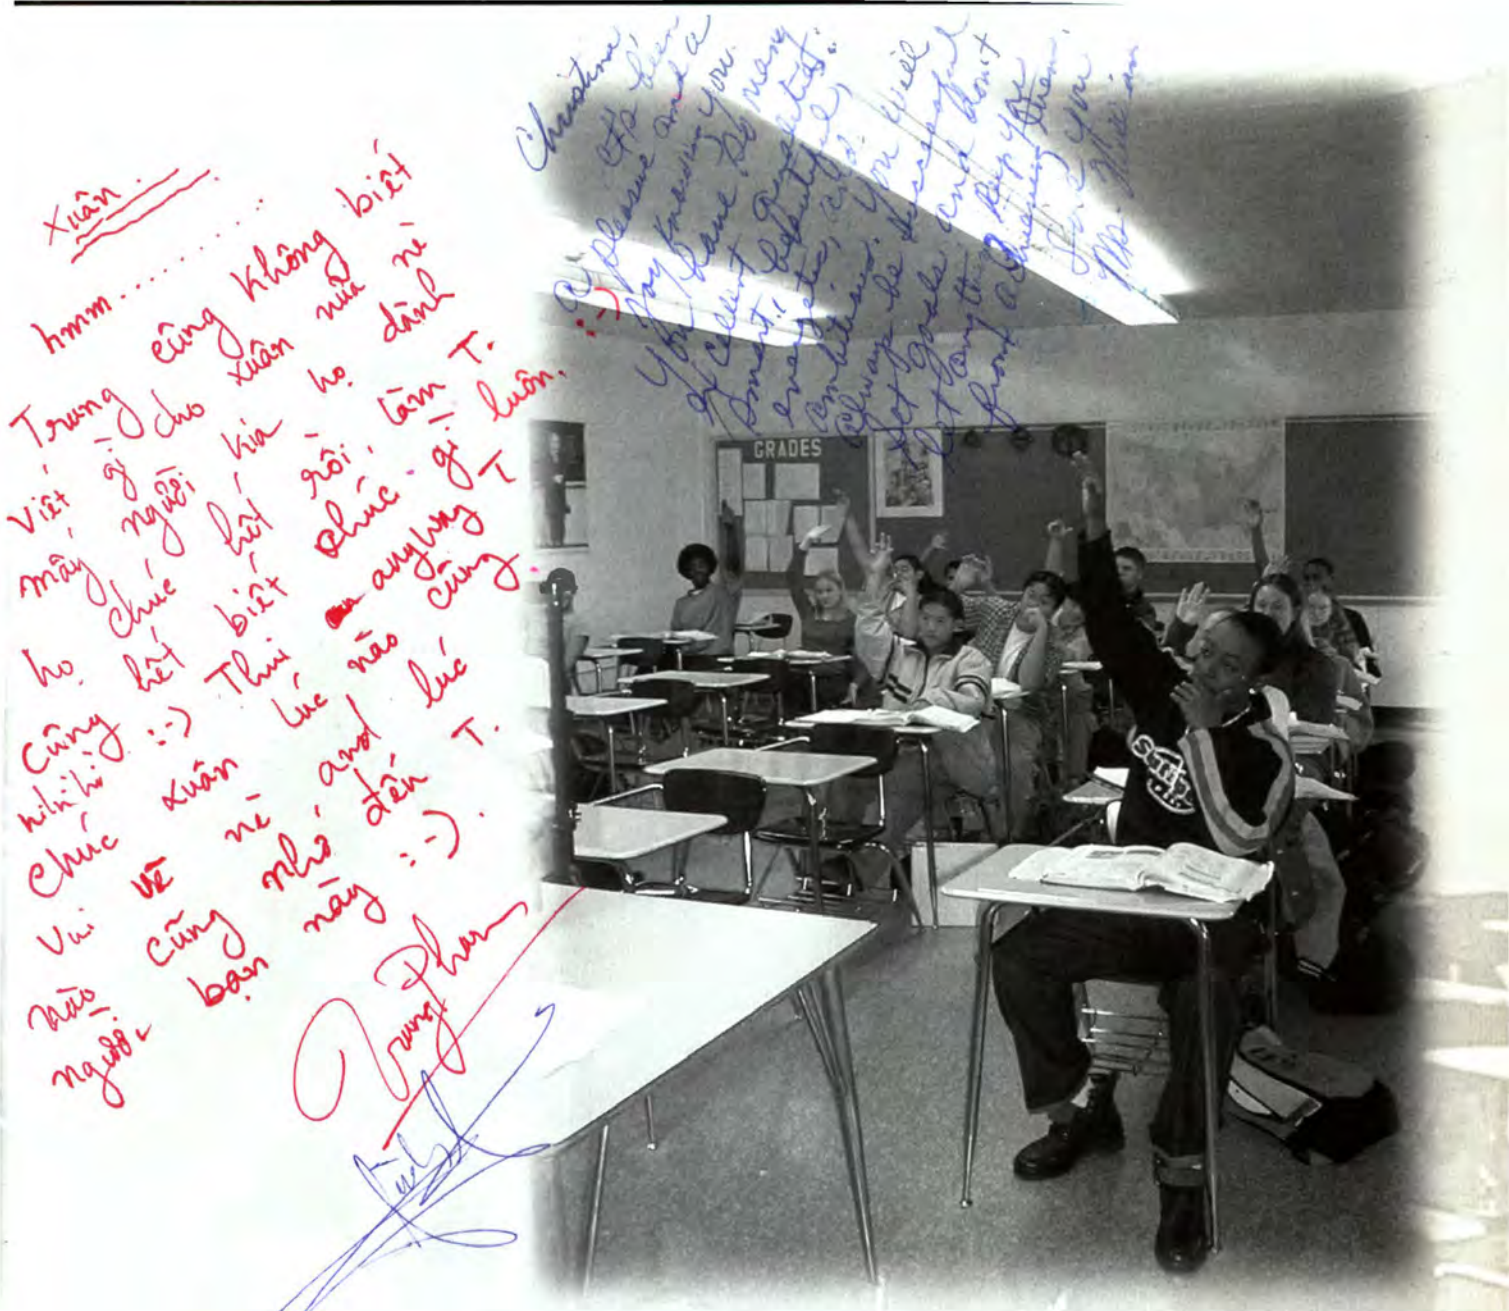 Xuân.
hmm..........
Trung cũng không biết
viết gì cho xuân nữa nè
mấy người kia họ dành
họ chúc hết rồi, làm T.
cũng hết biết chúc gì luôn.
hihihi :-) Thui anyway T
chúc xuân lúc nào cũng
vui vẽ nè and lúc
nào cũng nhớ đến T.
người bạn này :-).
Trung Phan
Christine
It's been
a pleasure and a
joy knowing you.
You have so many
excellent qualities:
smart, beautiful,
energetic, and
ambitious. You will
always be successful
Set goals and don't
let anything keep you
from achieving them.
:-)
GRADES